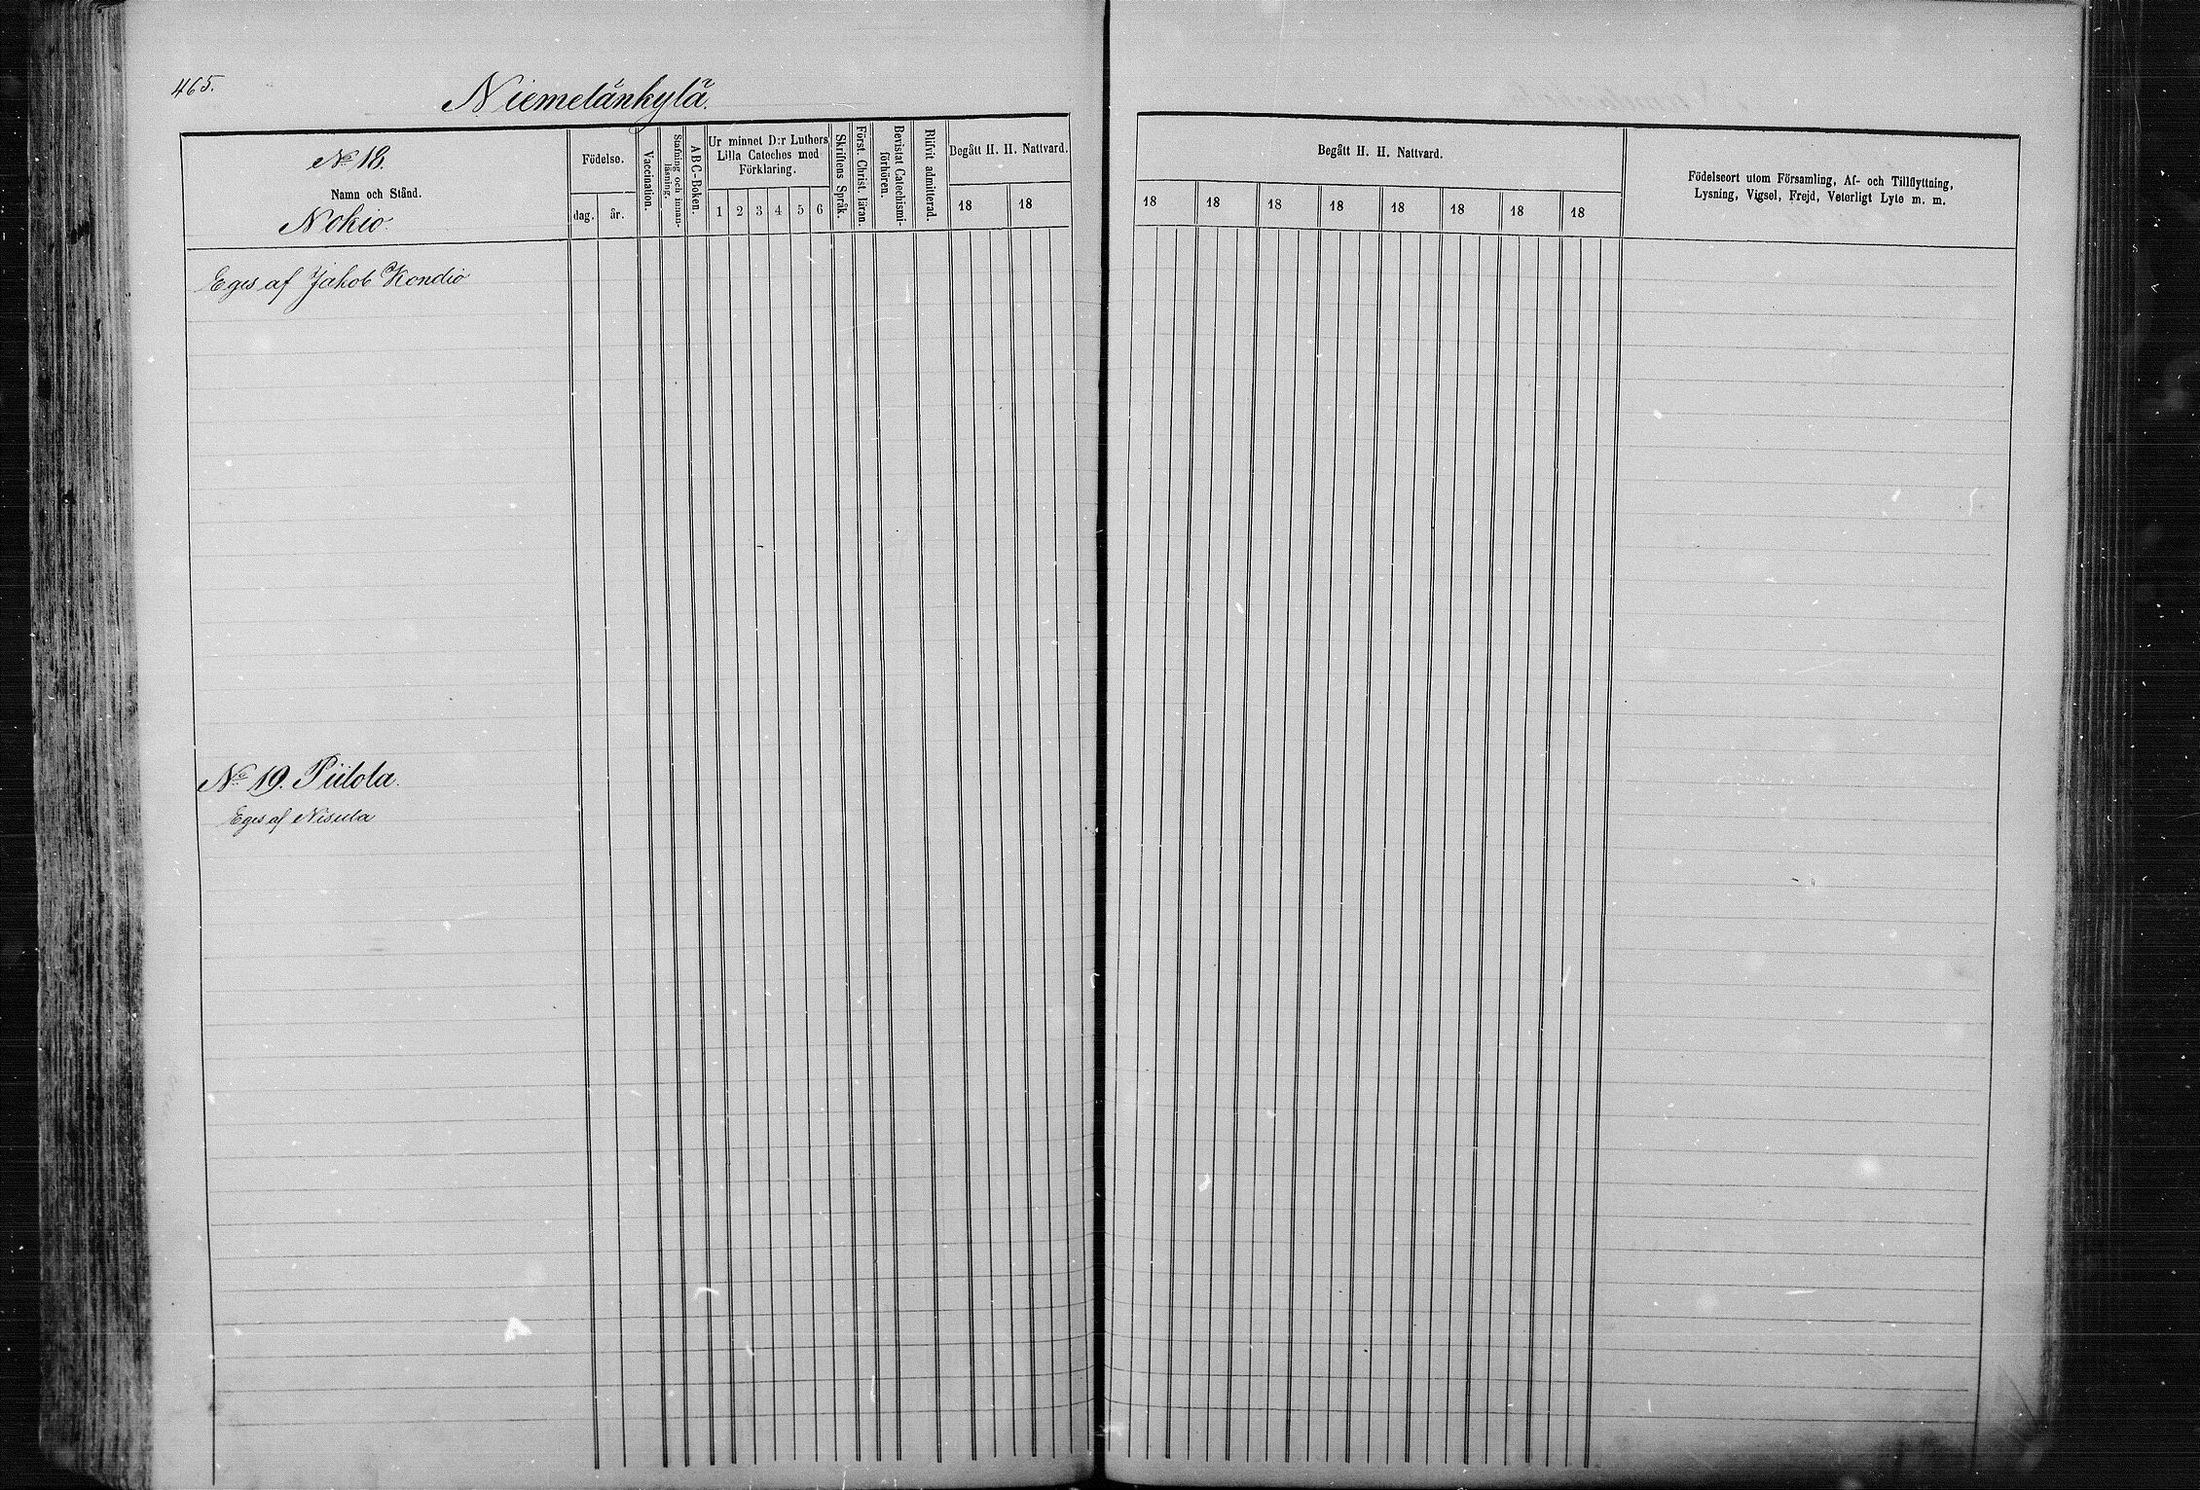 465.
Niemelänkylä.
No 18.
Namn och Stånd.
Nokio.
Födelse.
dag.
år.
Vaccination.
Stafning och innan-
läsning.
ABC-Boken.
Ur minnet D:r Luthers
Lilla Cateches med
Förklaring.
1 2 3 4 5 6
Skriftens Språk.
Först. Christ. läran.
Bevistat Catechismi-
förhören.
Blifvit admitterad.
Begått H. H. Nattvard.
18 18
Begått H. H. Nattvard.
18 18 18 18 18 18 18 18
Födelseort utom Församling, Af- och Tillflyttning,
Lysning, Vigsel, Frejd, Veterligt Lyte m. m.
Eges af Jakob Kondio
No 19. Piilola.
Eges af Nisula